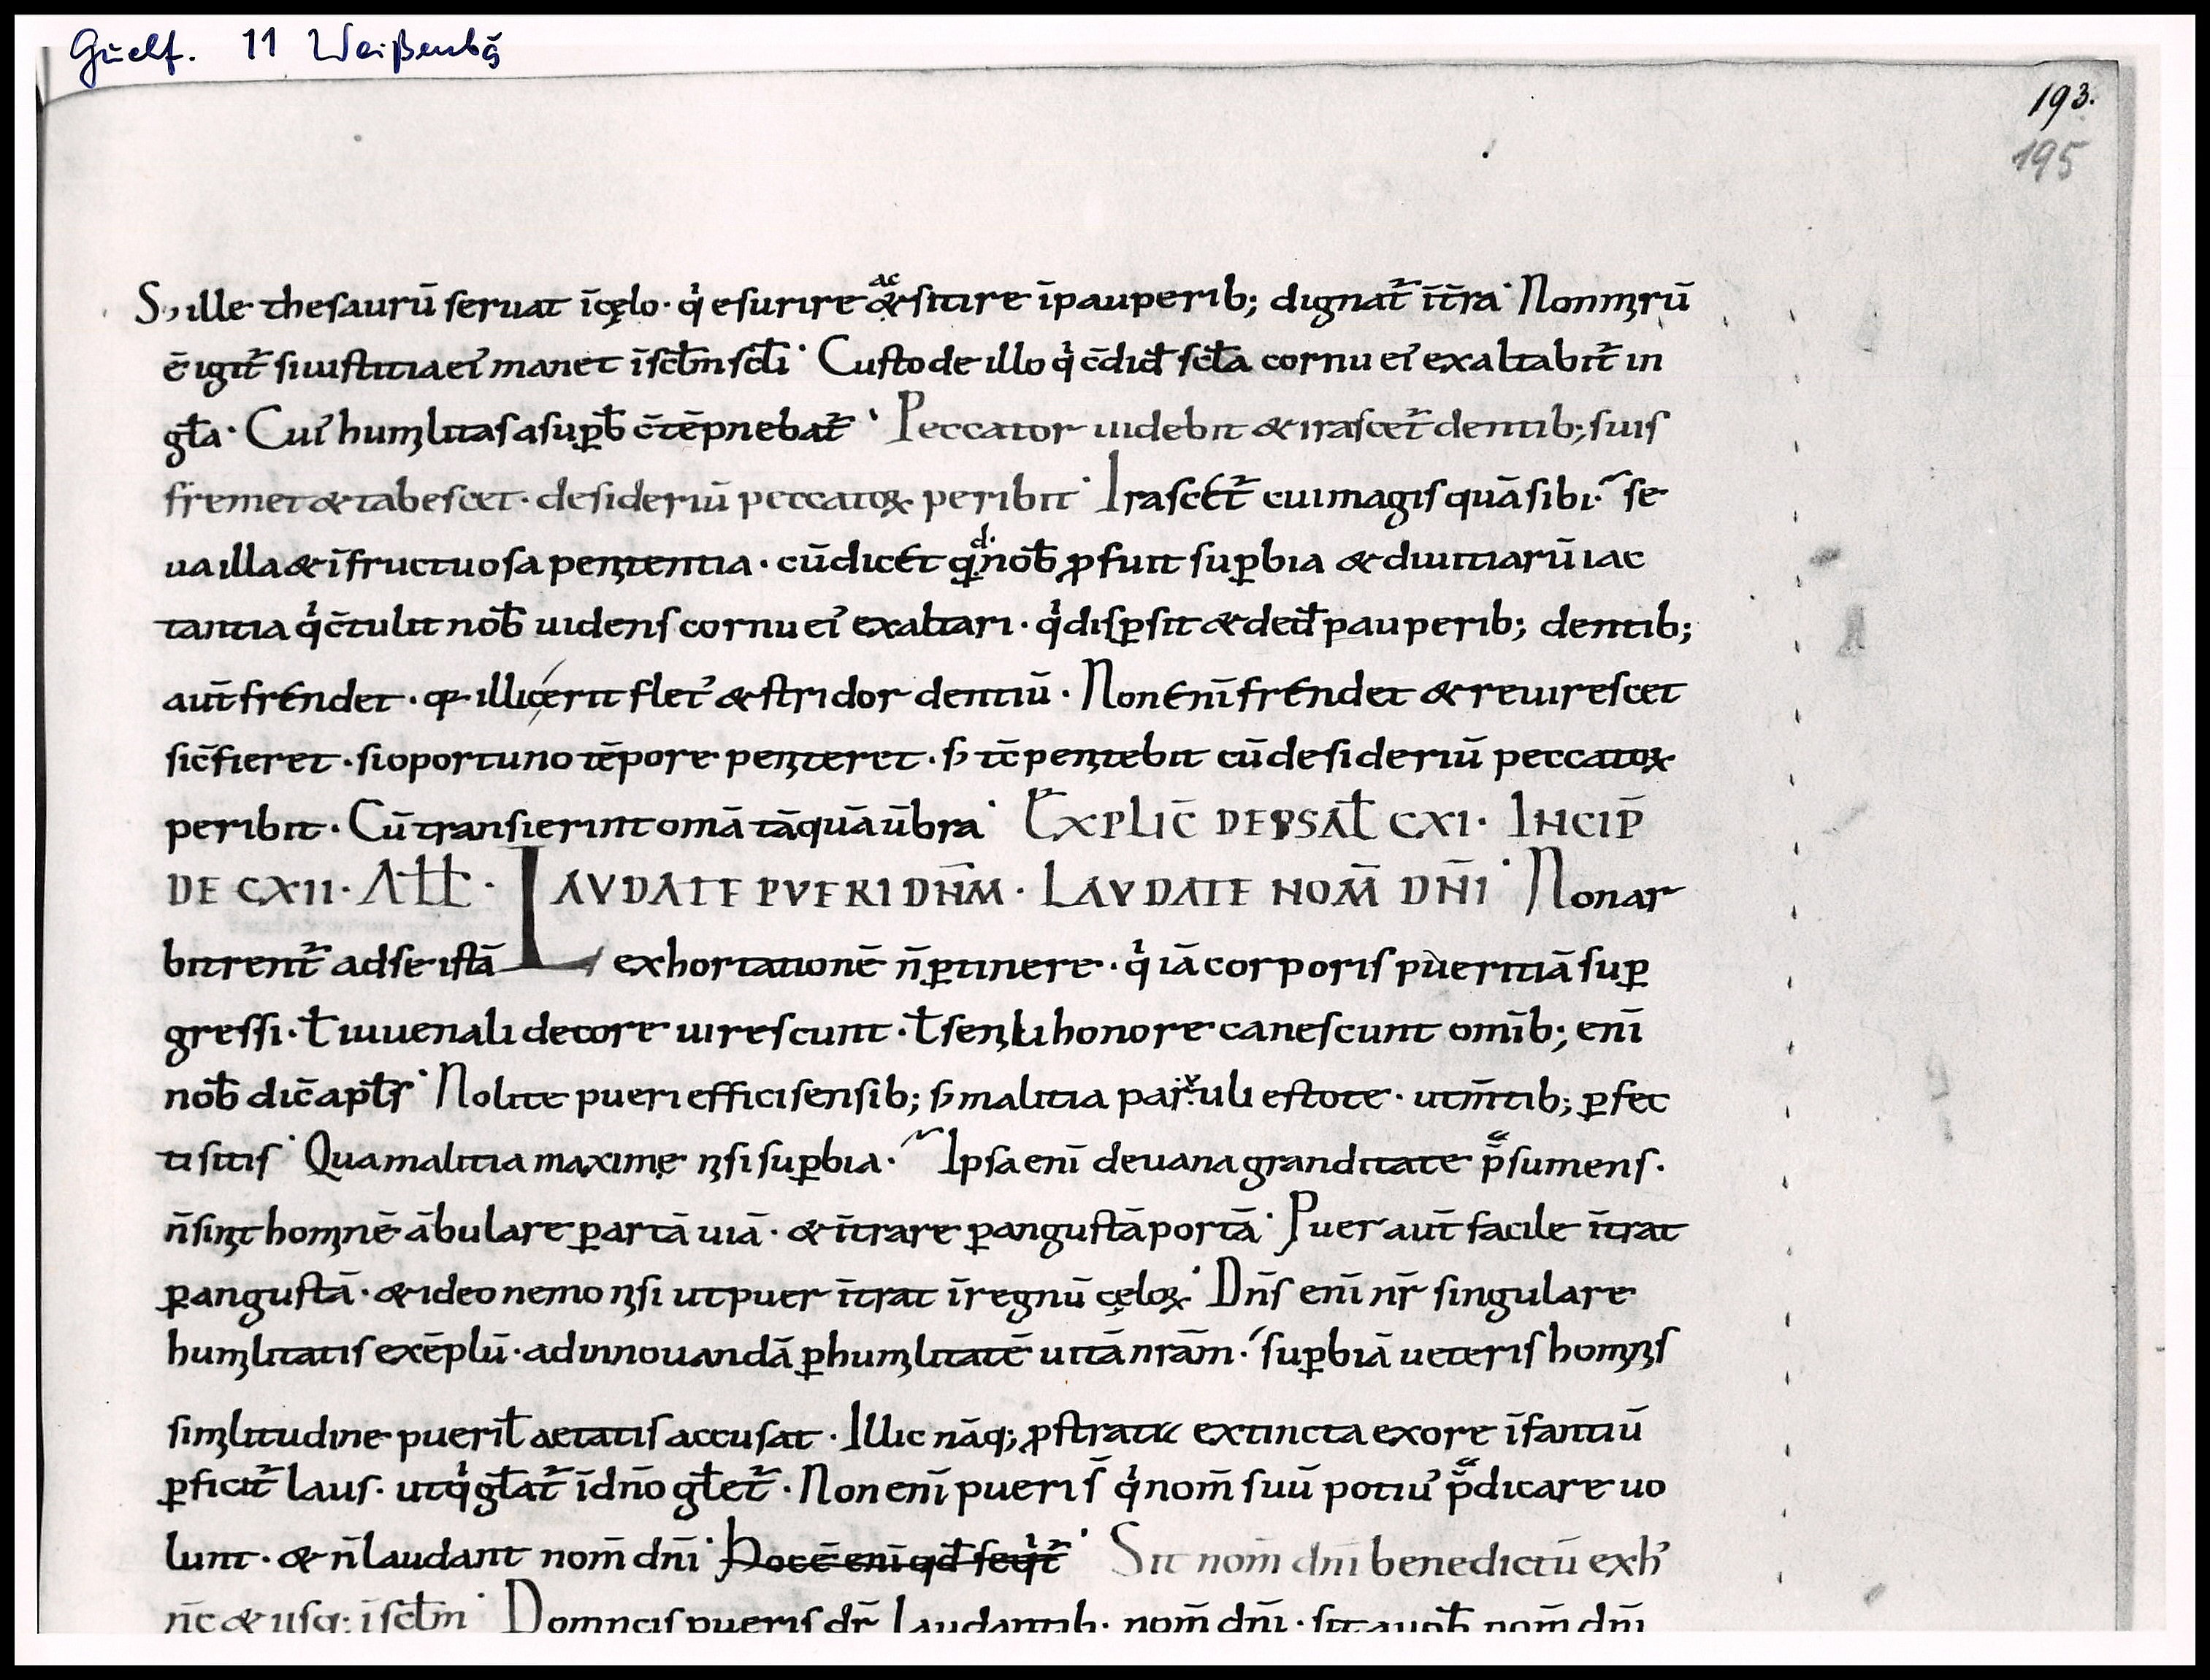 Guelf. 11 Weißenbg
193.
195
S; ille thesaurū seruat īcęlo· qͥ esurire & ac sitire īpauperib; dignat᷑ ītr̄a· Nonmirū
ē igit᷑ siiustitiaeiꝰ manet īsctm̄ sctī· Custode illo qͥ c̄did̄ sct̄a cornu eiꝰ exaltabit᷑ in
gƚa· Cuiꝰ humilitasasuꝑƀ c̄tēpnebat᷑· Peccator uidebit &irascet᷑ dentib; suis
fremet&tabescet· desideriū peccatoꝝ peribit· Irascet᷑ cuimagisquāsibi· se
uailla&īfructuosa penitentia· cūdicet qi d· nob̄ ꝓfuit suꝑbia &diuitiarūiac
tantia qͥc̄tulit nob̄ uidens cornu eiꝰ exaltari· qͥdisꝑsit &ded̄ pauperib; dentib;
aut̄frendet· qꝛ illicerit fletꝰ &stridor dentiū· Nonenīfrendet &reuirescet
sic̄fieret· sioportuno tēpore peniteret· ẜ tc̄penitebit cūdesideriū peccatoꝝ
peribit· Cūtransierintom̄a tāquāūbra· EXPLIC̄ DEPSAƚ CXI· INCIP̄
DE CXII· AƚƚƐ· LAVDATE PVERI DN̄M· LAVDATE NOM̄ DN̄I· Nonar
bitrent᷑ adseistā exhortationē n̄ꝑtinere· qͥ iācorporispueritiāsuꝑ
gressi· ƚ iuuenali decore uirescunt· ƚsenili honore canescunt omīb; enī
nob̄ dic̄ apƚs· Nolite pueri efficisensib; ẜ malitia paruuli estote· utm̄tib; ꝑfec
tisitis· Quamalitia maximę nisisuꝑbia· Ipsaenī deuanagranditate p̄sumens·
n̄sinit hominē ābulare ꝑartā uiā· &ītrare ꝑangustāportā· Puer aut̄ facile ītrat
ꝑangustā· &ideo nemo nisi utpuer ītrat īregnū cęloꝝ· Dn̄s enī nr̄ singulare
humilitatis exēplū· adinnouandā ꝑhumilitatē uitānrām· suꝑbiā ueteris hominis
similitudine pueriƚ aetatis accusat· Illic nāq; ꝓstrata extincta exore īfantiū
ꝑficit᷑ laus· utqͥgƚat᷑ īdn̄o gƚet᷑· Non enī pueri s̄ qͥnom̄ suū potiꝰ p̄dicare uo
lunt· &n̄laudant nom̄ dn̄i· Hocē enī qd̄ seqͥt᷑· Sit nom̄ dn̄i benedictū exhͦ
n̄c &usq; īsctm̄· Domincispueris dr̄ Laudantib· nom̄ dn̄i· sitaūnb̄ nom̄ dn̄i